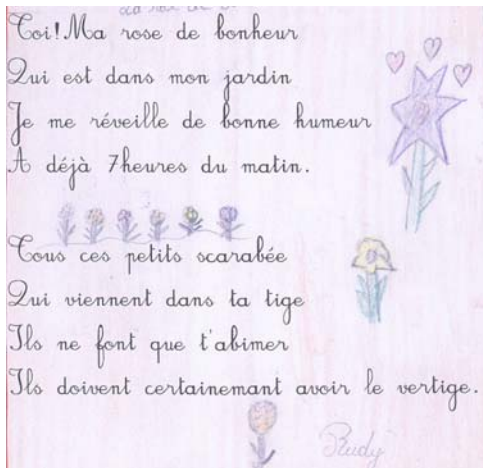 Toi! Ma rose de bonheur
Qui est dans mon jardin
Je me réveille de bonne humeur
A déjà 7heures du matin.
Tous ces petits scarabée
Qui viennent dans ta tige
Ils ne font que t'abimer
Ils doivent certainemant avoir le vertige.
Rudy